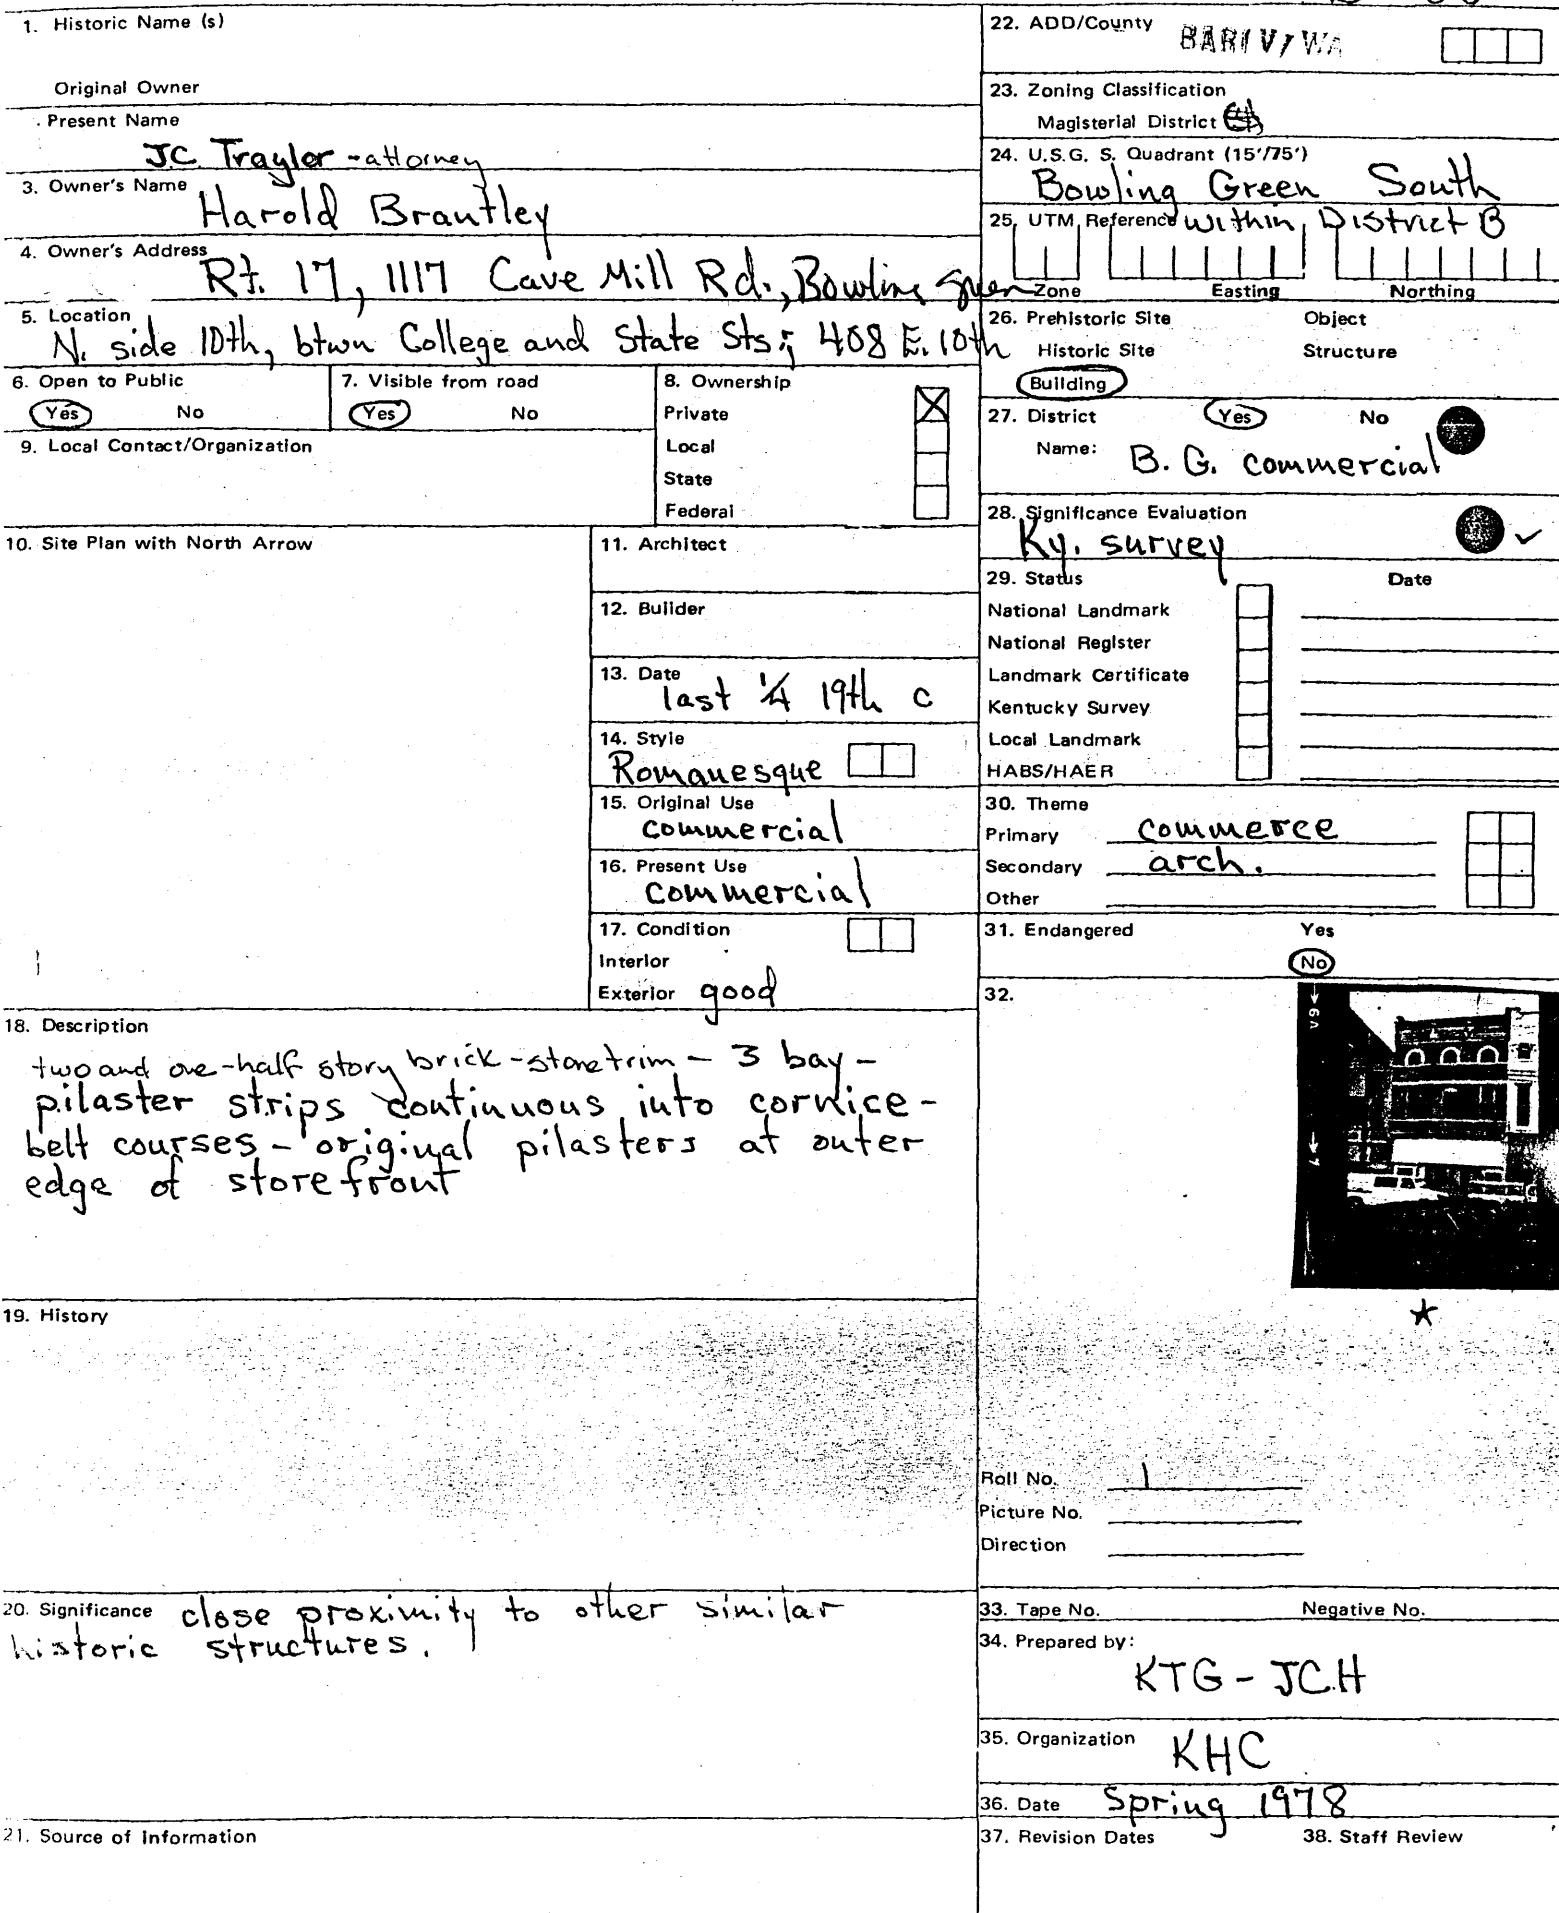 1. Historic Name (s)
Original Owner
Present Name
J.C. Traylor - attorney
3. Owner's Name
Harold Brantley
4. Owner's Address
Rt. 17, 1117 Cave Mill Rd., Bowling Green
5. Location
N. side 10th, btwn College and State Sts.; 408 E. 10th
6. Open to Public
Yes No
7. Visible from road
Yes No
8. Ownership
Private
Local
State
Federal
9. Local Contact/Organization
10. Site Plan with North Arrow
11. Architect
12. Builder
13. Date
last 1/4 19th c
14. Style
Romanesque
15. Original Use
commercial
16. Present Use
commercial
17. Condition
Interior
Exterior good
18. Description
two and one-half story brick - stone trim - 3 bay -
pilaster strips continuous into cornice -
belt courses - original pilasters at outer
edge of storefront
19. History
20. Significance close proximity to other similar
historic structures.
21. Source of Information
22. ADD/County
23. Zoning Classification
Magisterial District
24. U.S.G. S. Quadrant (15'/75')
Bowling Green South
25. UTM Reference within District B
Zone Easting Northing
26. Prehistoric Site Object
Historic Site Structure
Building
27. District Yes No
Name: B. G. commercial
28. Significance Evaluation
Ky. survey
29. Status Date
National Landmark
National Register
Landmark Certificate
Kentucky Survey
Local Landmark
HABS/HAER
30. Theme
Primary commerce
Secondary arch.
Other
31. Endangered Yes
No
32.
Roll No. 1
Picture No.
Direction
33. Tape No. Negative No.
34. Prepared by:
KTG - JCH
35. Organization KHC
36. Date Spring 1978
37. Revision Dates 38. Staff Review